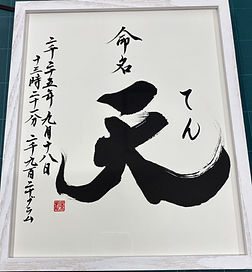 命名
天
てん
二千二十五年 九月十八日
十三時二十一分 二千九百二十グラム